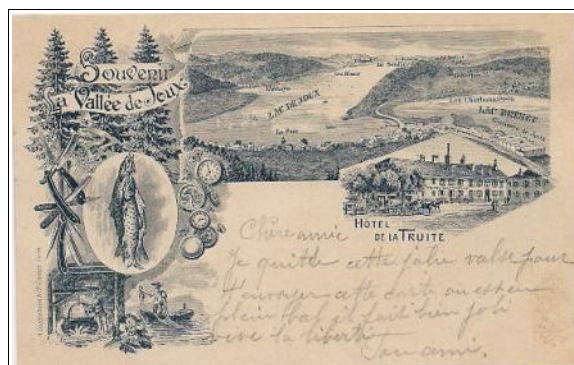 Souvenir
La Vallée de Joux
LAC DE JOUX
Le Pont
Les Charbonnières
LAC BRENET
HÔTEL
DE LA TRUITE
Chère amie
Je quitte cette jolie valse pour
t'envoyer cette carte on est en
plein bal il fait bien joli
vive la liberté
Ton ami.